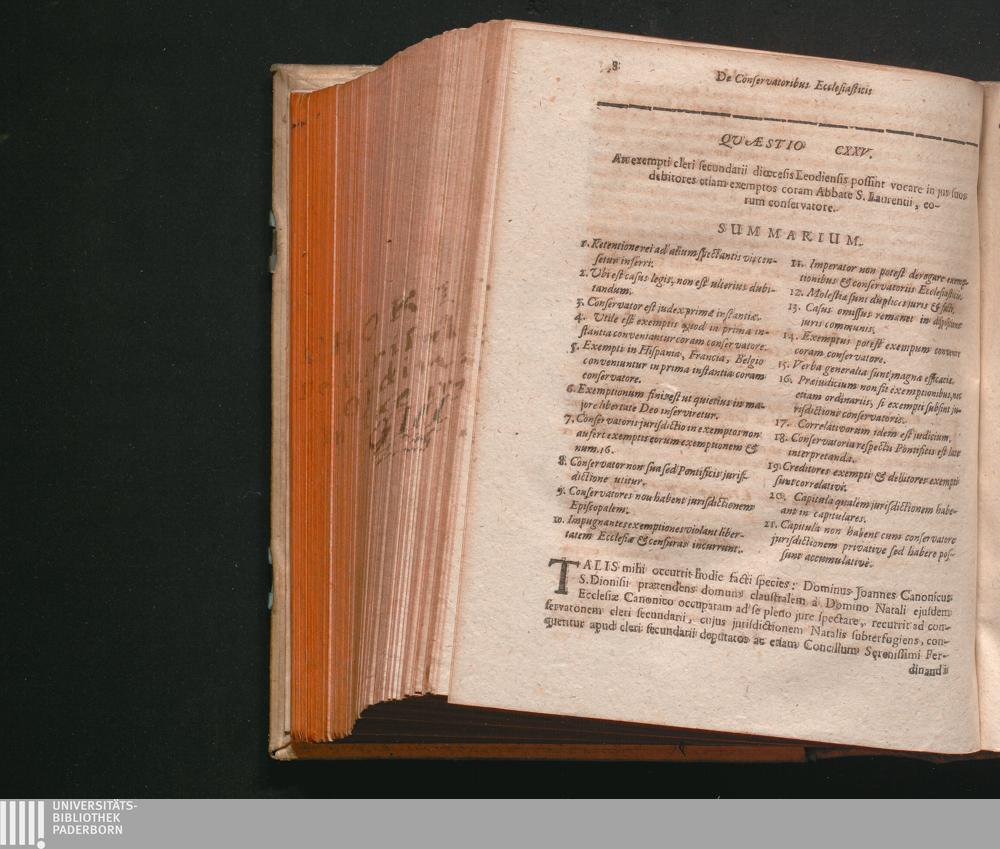 8
De Conservatoribus Ecclesiasticis
QVÆSTIO CXXV.
An exempti cleri secundarii diœcesis Leodiensis possint vocare in jus suos
debitores etiam exemptos coram Abbate S. Laurentii, eo-
rum conservatore.
SUMMARIUM.
1. Retentione rei ad alium spectantis vis cen-
setur inferri.
2. Ubi est casus legis, non est ulterius dubi-
tandum.
3. Conservator est judex primæ instantiæ.
4. Utile est exemptis quod in prima in-
stantia conveniantur coram conservatore.
5. Exempti in Hispania, Francia, Belgio
conveniuntur in prima instantia coram
conservatore.
6. Exemptionum finis est ut quietius in ma-
jore libertate Deo inserviretur.
7. Conservatoris jurisdictio in exemptos non
aufert exemptis eorum exemptionem &
num. 16.
8. Conservator non sua sed Pontificis juris-
dictione utitur.
9. Conservatores non habent jurisdictionem
Episcopalem.
10. Impugnantes exemptiones violant liber-
tatem Ecclesiæ & censuras incurrunt.
11. Imperator non potest derogare exemp-
tionibus & conservatoriis Ecclesiasticis.
12. Molestiæ sunt duplices juris & facti.
13. Casus omissus remanet in dispositione
juris communis.
14. Exemptus potest exemptum convenire
coram conservatore.
15. Verba generalia sunt magnæ efficaciæ.
16. Præiudicium non fit exemptionibus, nec
etiam ordinariis, si exempti subsint ju-
risdictioni conservatoris.
17. Correlativorum idem est judicium.
18. Conservatoria respectu Pontificis est late
interpretanda.
19. Creditores exempti & debitores exempti
sunt correlativi.
20. Capitula qualem jurisdictionem habe-
ant in capitulares.
21. Capitula non habent cum conservatore
jurisdictionem privative sed habere pos-
sunt accumulative.
TALIS mihi occurrit hodie facti species: Dominus Joannes Canonicus
S. Dionisii prætendens domum claustralem à Domino Natali ejusdem
Ecclesiæ Canonico occupatam ad se pleno jure spectare, recurrit ad con-
servatorem cleri secundarii, cujus jurisdictionem Natalis subterfugiens, con-
queritur apud cleri secundarii deputatos ac etiam Concilium Serenissimi Fer-
dinandi
UNIVERSITÄTS-
BIBLIOTHEK
PADERBORN